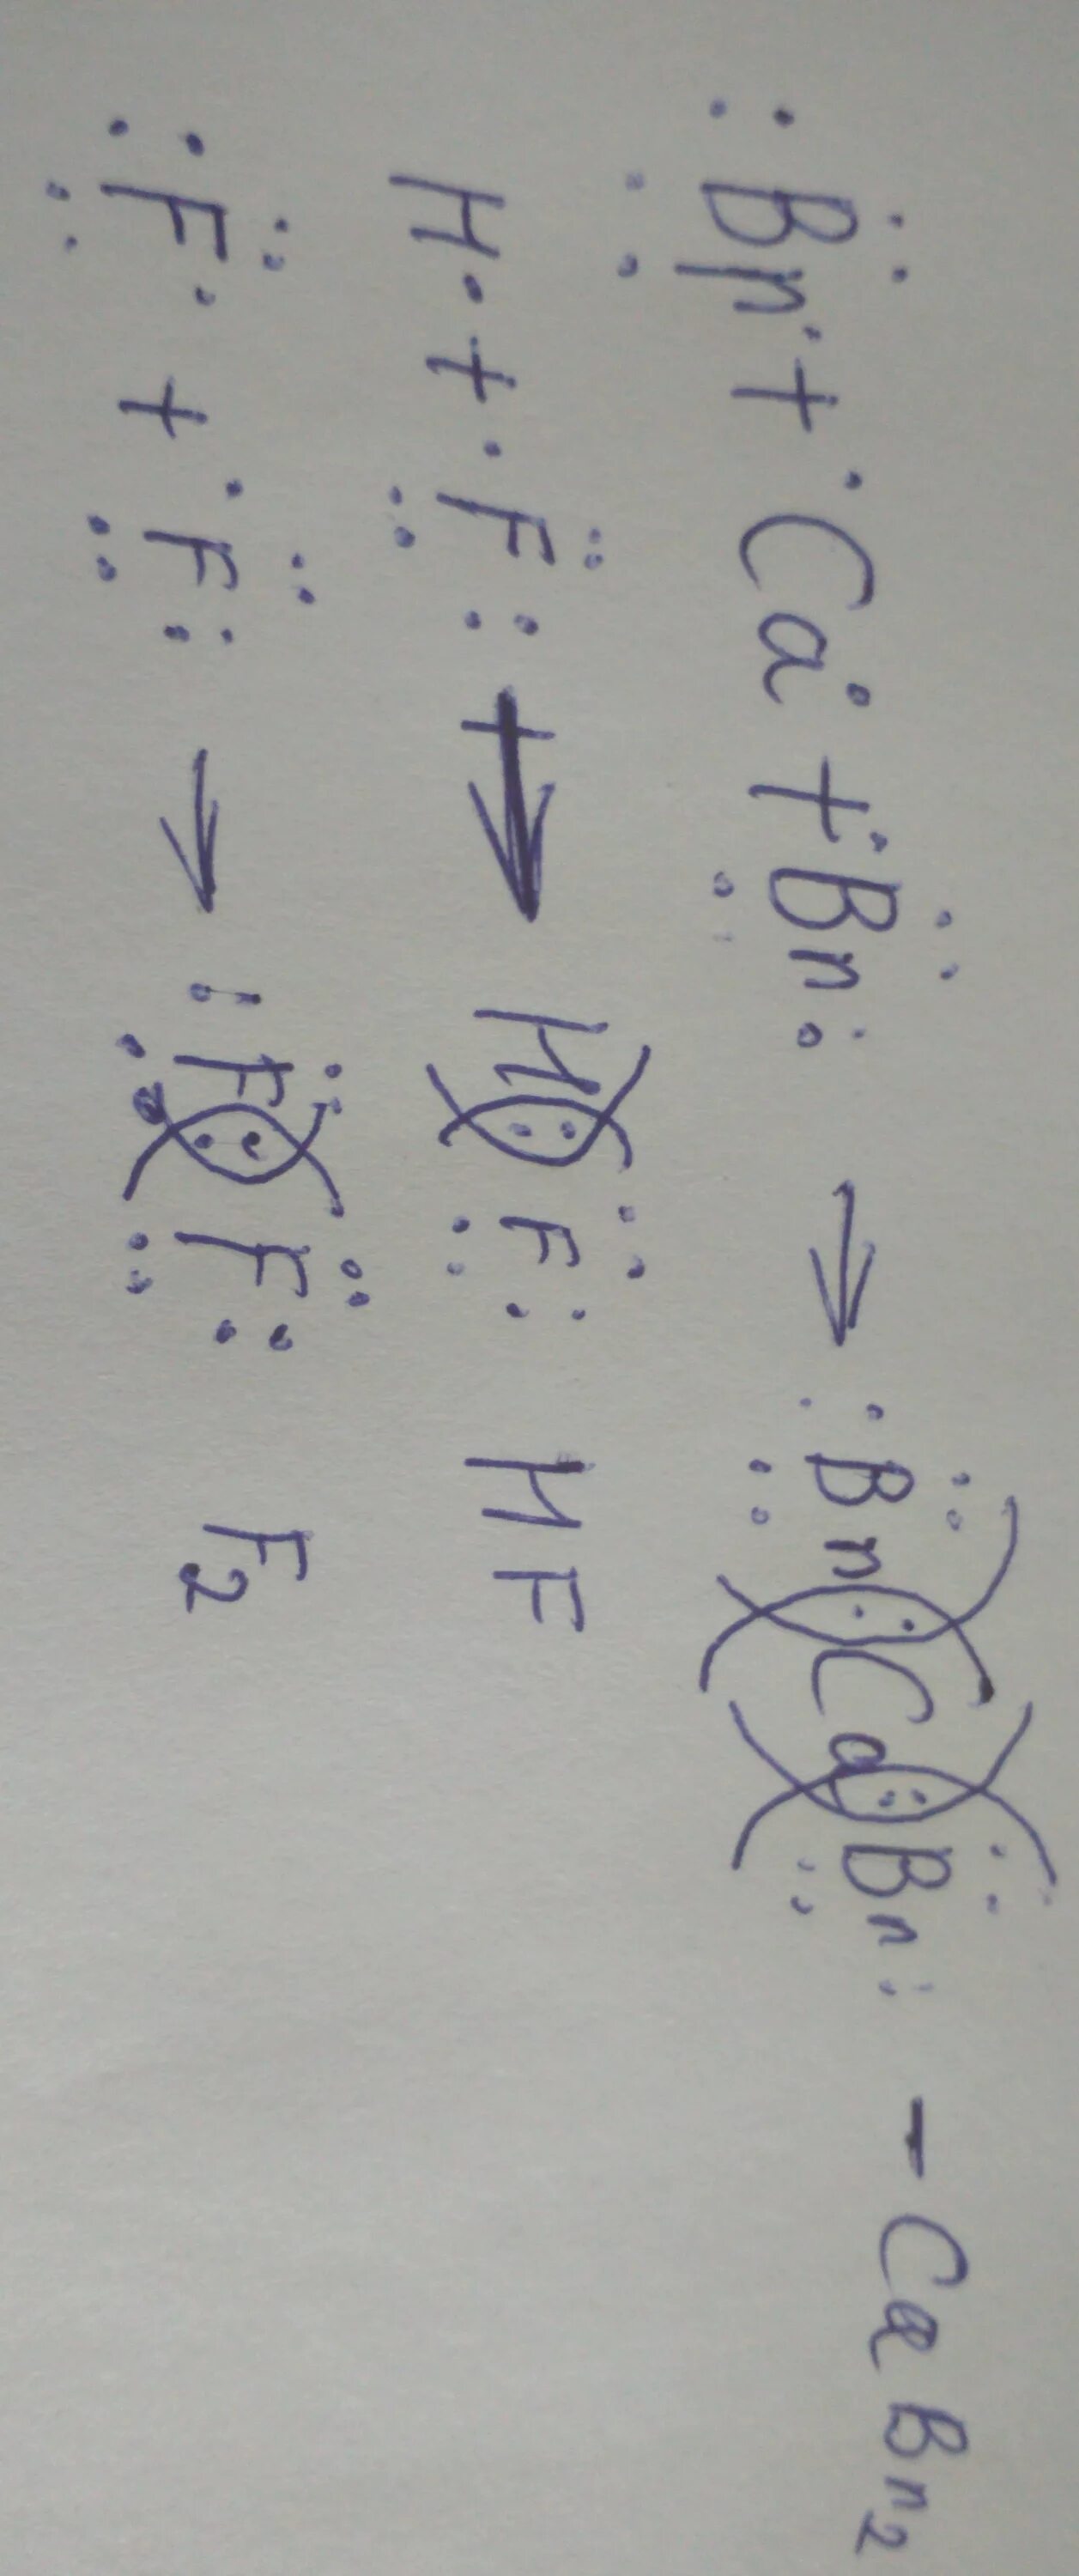 :Br· + ·Ca· + ·Br: → :Br:Ca:Br: - CaBr₂
H· + ·F: → H:F: HF
:F· + ·F: → :F:F: F₂